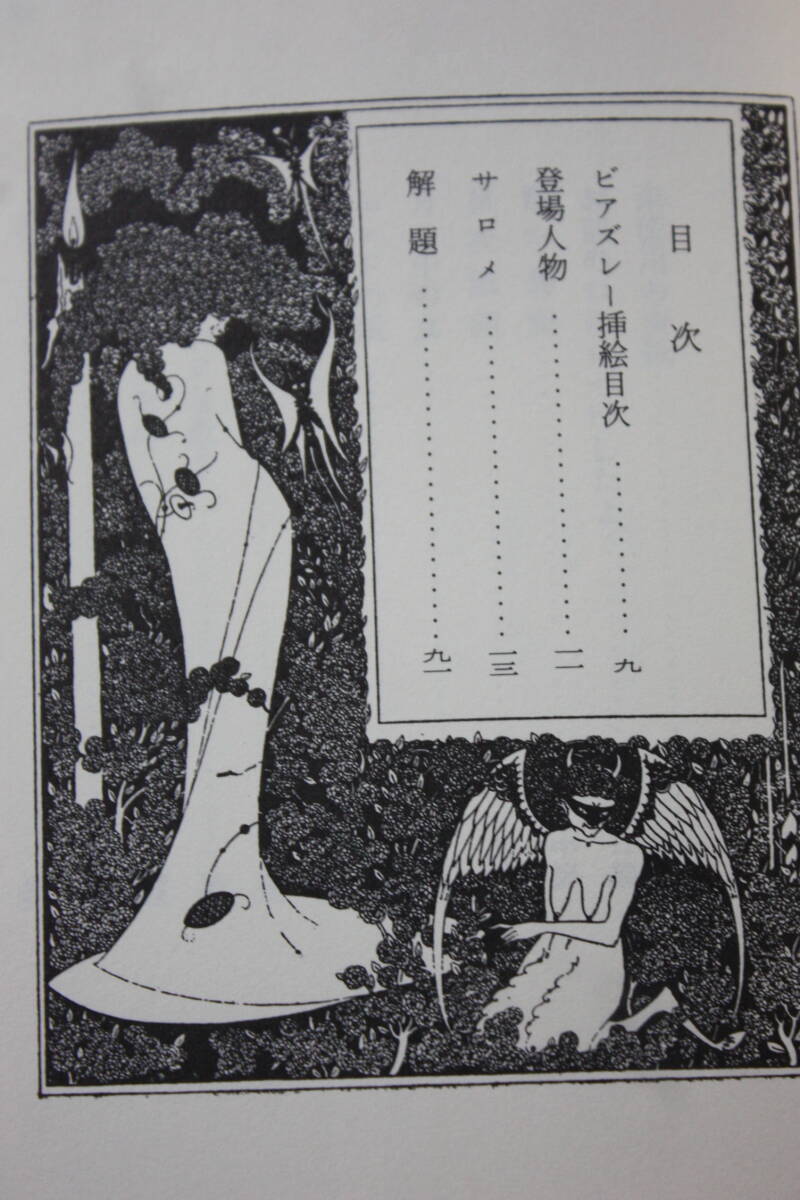 目次
ビアズレー挿絵目次 ………… 九
登場人物 ………… 一一
サロメ ………… 一三
解題 ………… 九一